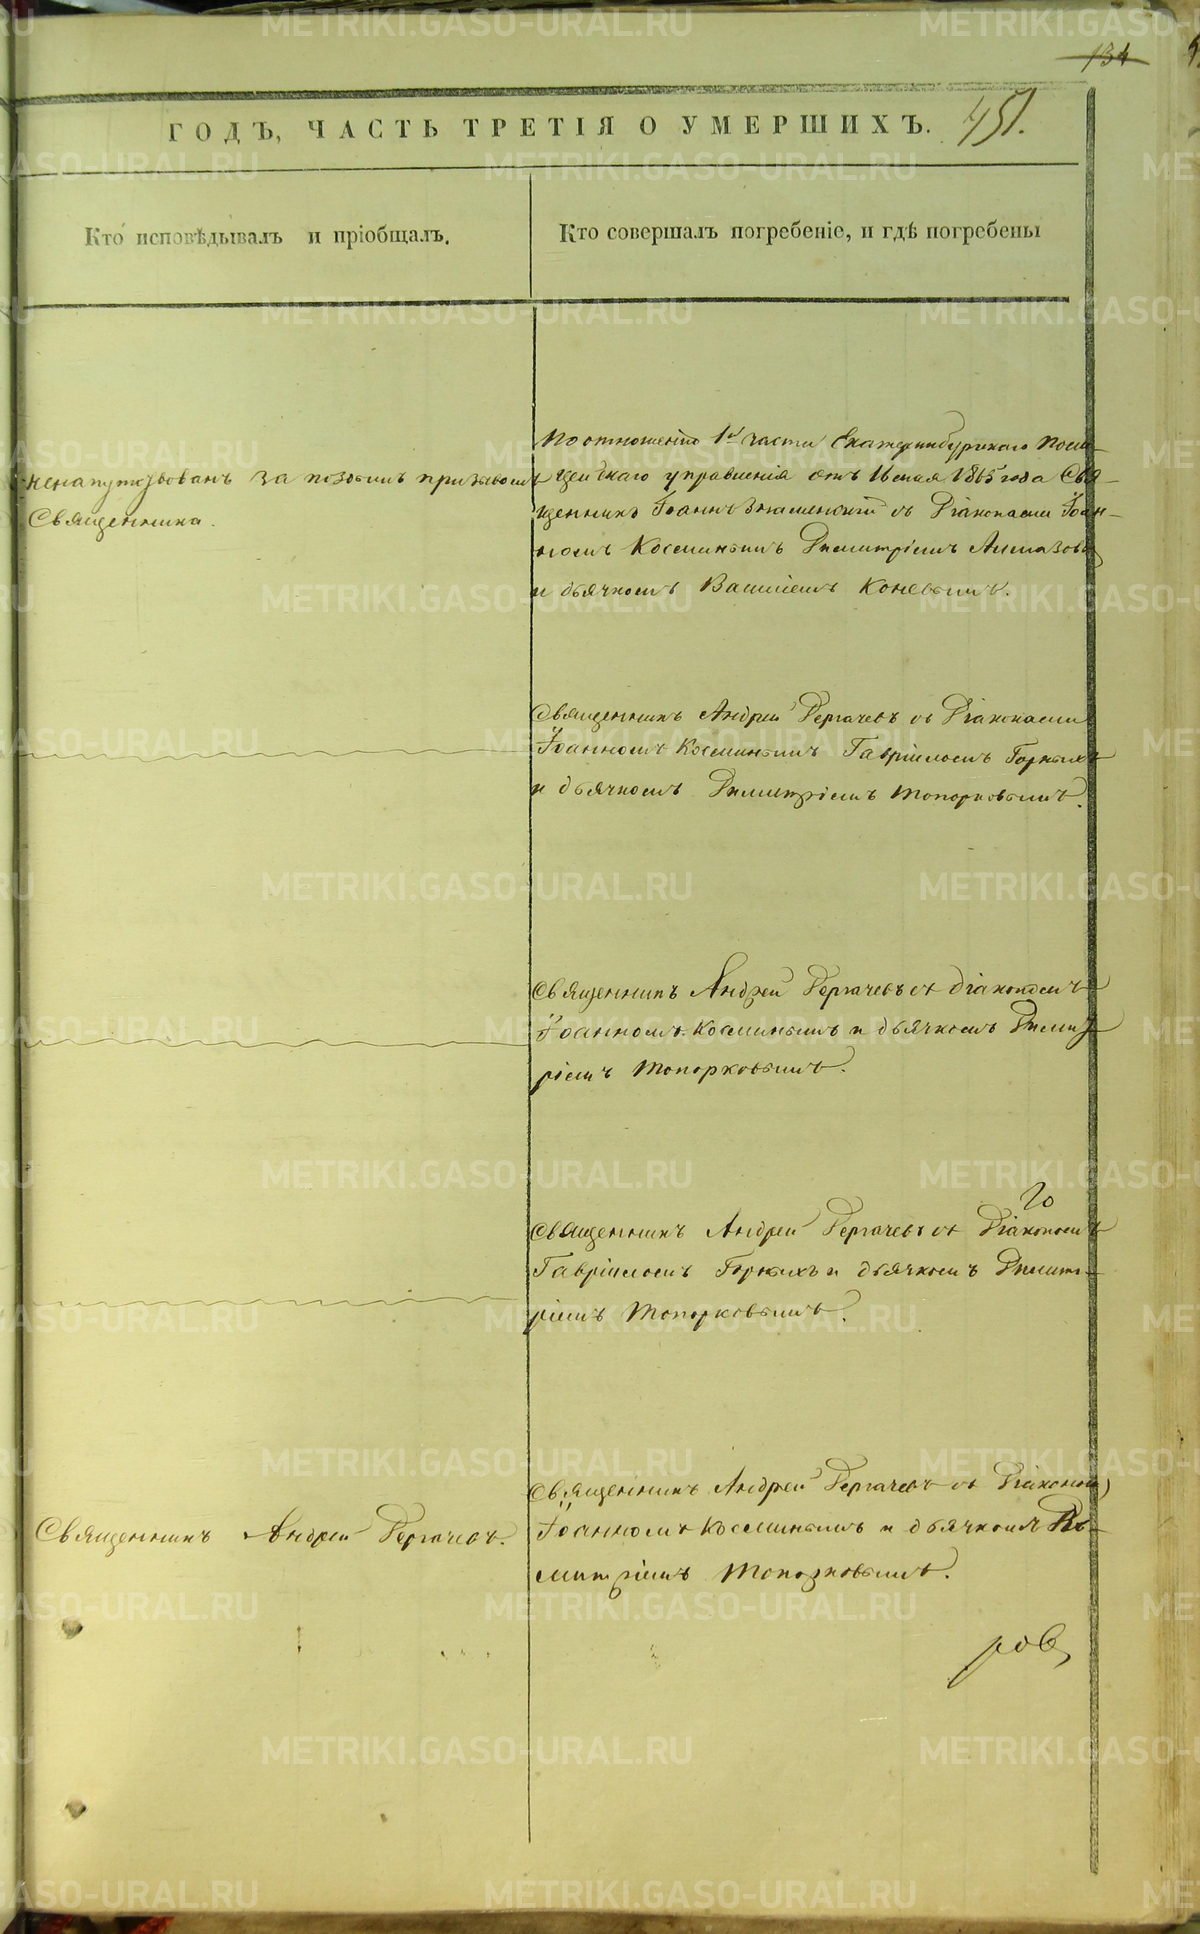 134
451.
ГОДЪ, ЧАСТЬ ТРЕТІЯ О УМЕРШИХЪ.
Кто исповѣдывалъ и пріобщалъ.
Кто совершалъ погребеніе, и гдѣ погребены
ненапутствованъ за позднимъ призывомъ
Священника.
По отношенію 1й части Екатеринбургскаго Поли-
цейскаго управленія отъ 16 мая 1865 года Свя-
щенникъ Іоаннъ Знаменскій съ Діаконами Іоан-
номъ Космин​ымъ Димитріемъ Алмазовы
и дьячкомъ Василіемъ Коневымъ.
Священникъ Андрей Дергачевъ съ Діаконами
Іоанномъ Косминымъ Гавріиломъ Горныхъ
и дьячкомъ Димитріемъ Топорковымъ.
Священникъ Андрей Дергачевъ съ діакономъ
Іоанномъ Косминымъ и дьячкомъ Димит
ріемъ Топорковымъ.
20
Священникъ Андрей Дергачевъ съ Діакономъ
Гавріиломъ Горныхъ и дьячкомъ Димит-
ріемъ Топорковымъ.
Священникъ Андрей Дергачевъ.
Священникъ Андрей Дергачевъ съ Діаконом
Іоанномъ Косминымъ и дьячкомъ Ди-
митріемъ Топорковымъ.
ров
METRIKI.GASO-URAL.RU